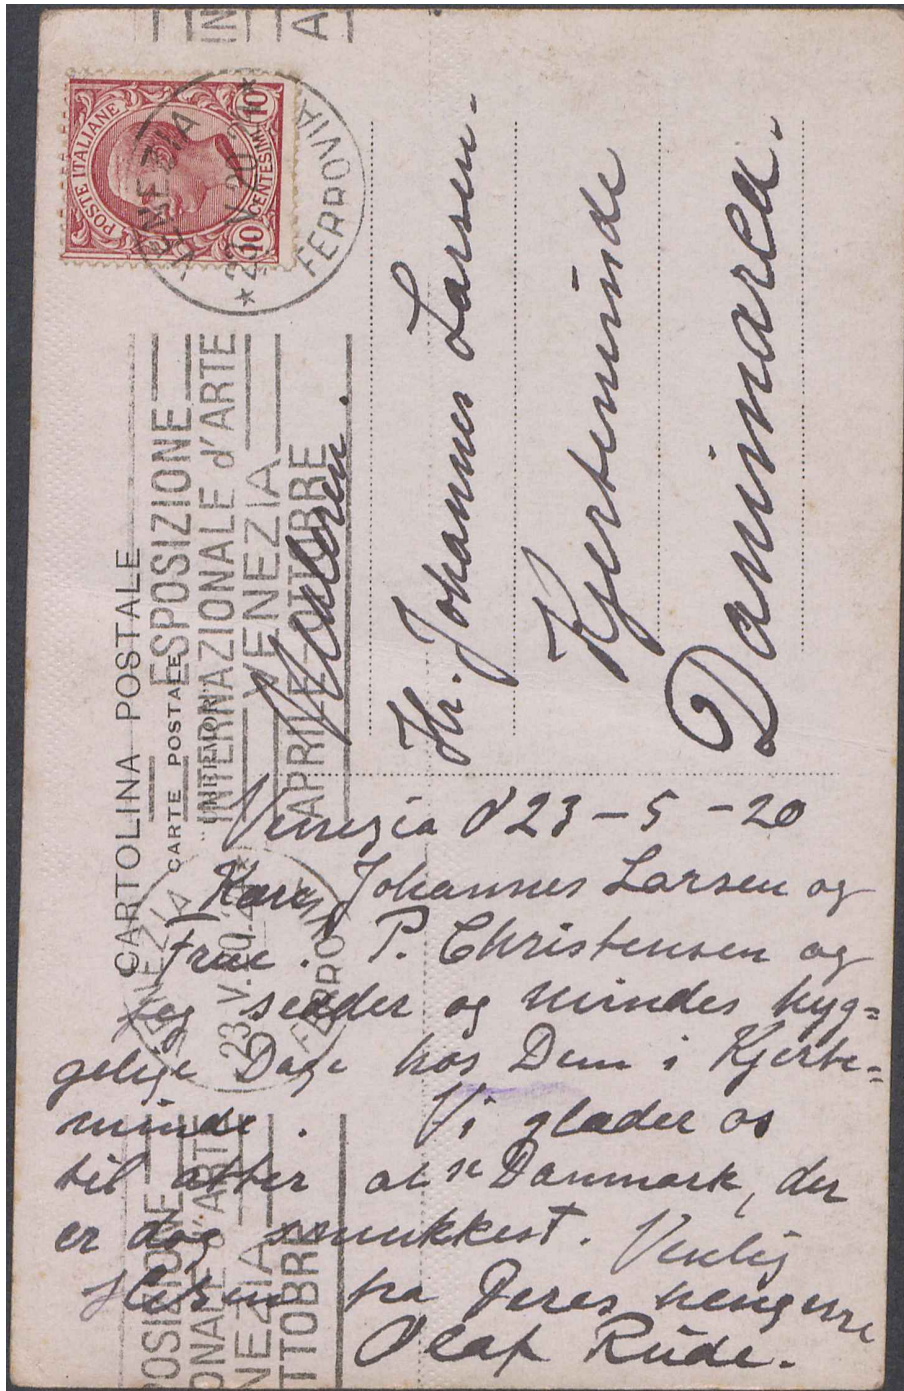 CARTOLINA POSTALE
CARTE POSTALE
POSTE ITALIANE
10 CENTESIMI 10
VENEZIA
23 V 20
FERROVIA
ESPOSIZIONE
INTERNAZIONALE d'ARTE
VENEZIA
APRILE-OTTOBRE
Maleren.
Hr. Johannes Larsen.
Kjerteminde
Danimarca.
Venezia d 23-5-20
Kære Johannes Larsen og
Frue. P. Christensen og
jeg sidder og mindes hyg=
gelige Dage hos Dem i Kjerte=
minde. Vi glæder os
til atter at se Danmark, der
er dog smukkest. Venlig
Hilsen fra Deres hengivne
Olaf Rude.
VENEZIA
23 V 20
FERROVIA
POSIZIONE
ONALE d'ARTE
NEZIA
TTOBRE